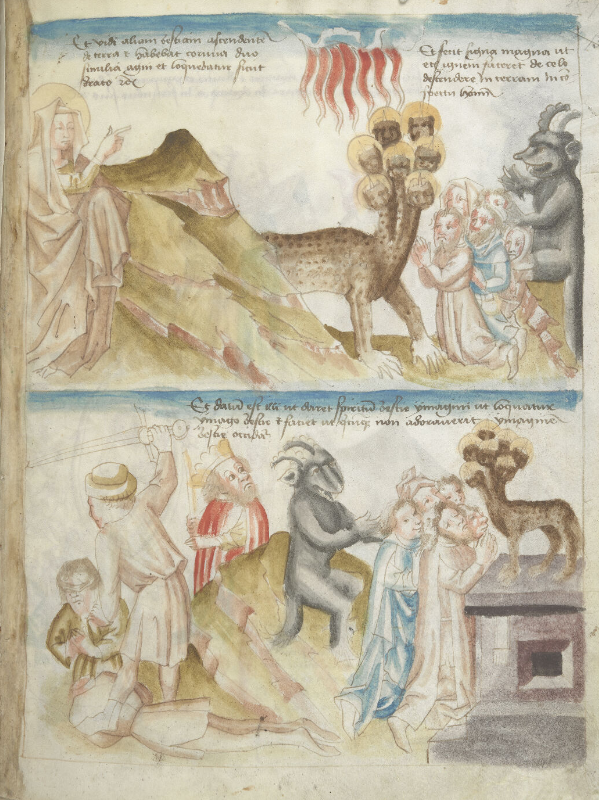 Et vidi aliam bestiam ascendente
de terra et habebat cornua duo
similia agni et loquebatur sicut
draco
Et fecit signa magna ut
eciam ignem faceret de celo
descendere in terram in
Et datum est illi ut daret spiritum bestie ymagini ut loquatur
ymago bestie et faciet ut non adoraverit ymagine
bestie